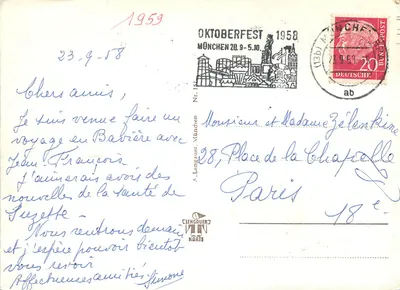 1959
23.9.58
Chers amis,
Je suis venue faire un
voyage en Bavière avec
Jean-François
J'aimerais avoir des
nouvelles de la santé de
Suzette.
Nous rentrons demain
et j'espère pouvoir bientôt
vous revoir
Affectueuses amitiés Simone
OKTOBERFEST 1958
MÜNCHEN 20.9-5.10.
(13b) MÜNCHEN
ab
20
DEUTSCHE
BUNDESPOST
Monsieur et Madame Zélenkine
28, Place de la Chapelle
Paris
18e
München
Nr.